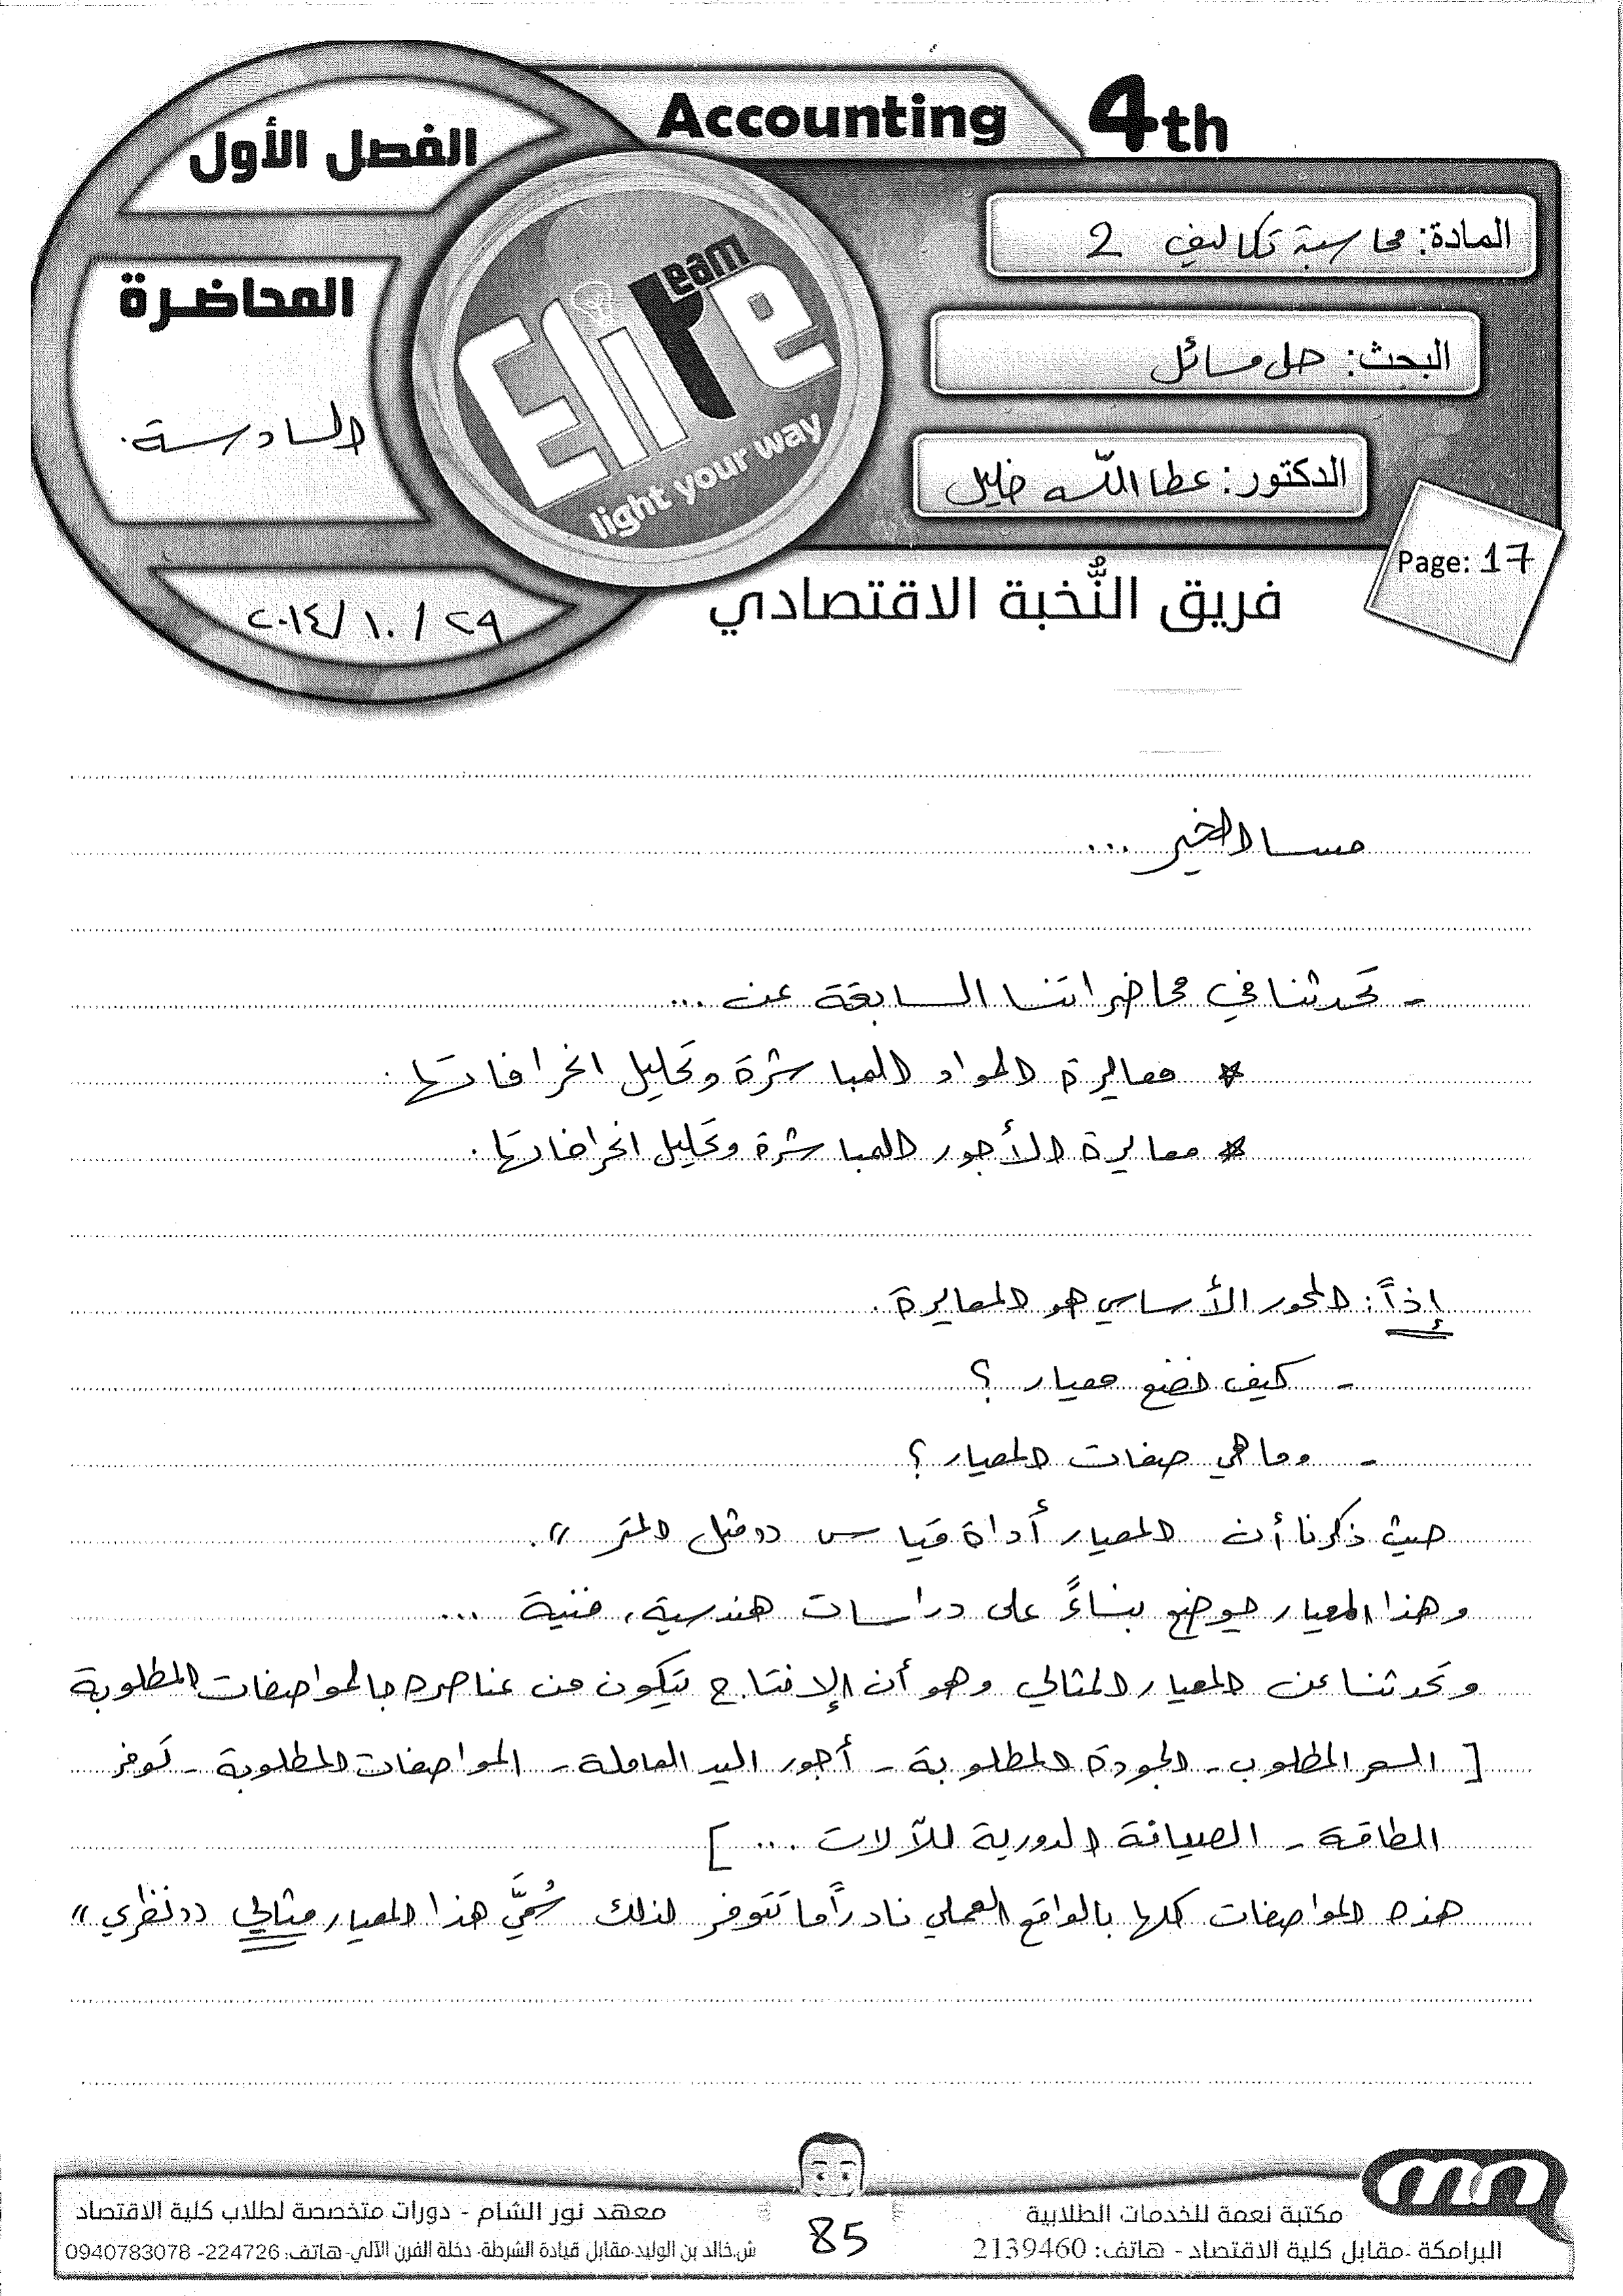 Accounting 4th
الفصل الأول
المادة: محاسبة تكاليف 2
المحاضرة
السادسة.
البحث: حل مسائل
الدكتور: عطا الله خليل
Elite Team
light your way
Page: 17
٢٠١٤/١٠/٢٩
فريق النُّخبة الاقتصادي
مساء الخير ...
- تحدثنا في محاضراتنا السابقة عن ...
* معايرة المواد المباشرة وتحليل انحرافاتها.
* معايرة الأجور المباشرة وتحليل انحرافاتها.
إذاً: المحور الأساسي هو المعايرة.
- كيف نضع معيار؟
- وما هي صفات المعيار؟
حيث ذكرنا أن المعيار أداة قياس "مثل المتر".
وهذا المعيار يوضع بناءً على دراسات هندسية، فنية ...
وتحدثنا عن المعيار المثالي وهو أن الإنتاج يتكون من عناصره بالمواصفات المطلوبة
[ السعر المطلوب - الجودة المطلوبة - أجور اليد العاملة - المواصفات المطلوبة - توفر
الطاقة - الصيانة الدورية للآلات ... ]
هذه المواصفات كلها بالواقع العملي نادراً ما تتوفر لذلك سُمّي هذا المعيار مثالي "نظري"
مكتبة نعمة للخدمات الطلابية
البرامكة -مقابل كلية الاقتصاد - هاتف: 2139460
85
معهد نور الشام - دورات متخصصة لطلاب كلية الاقتصاد
ش.خالد بن الوليد-مقابل قيادة الشرطة- دخلة الفرن الآلي-هاتف: 224726- 0940783078